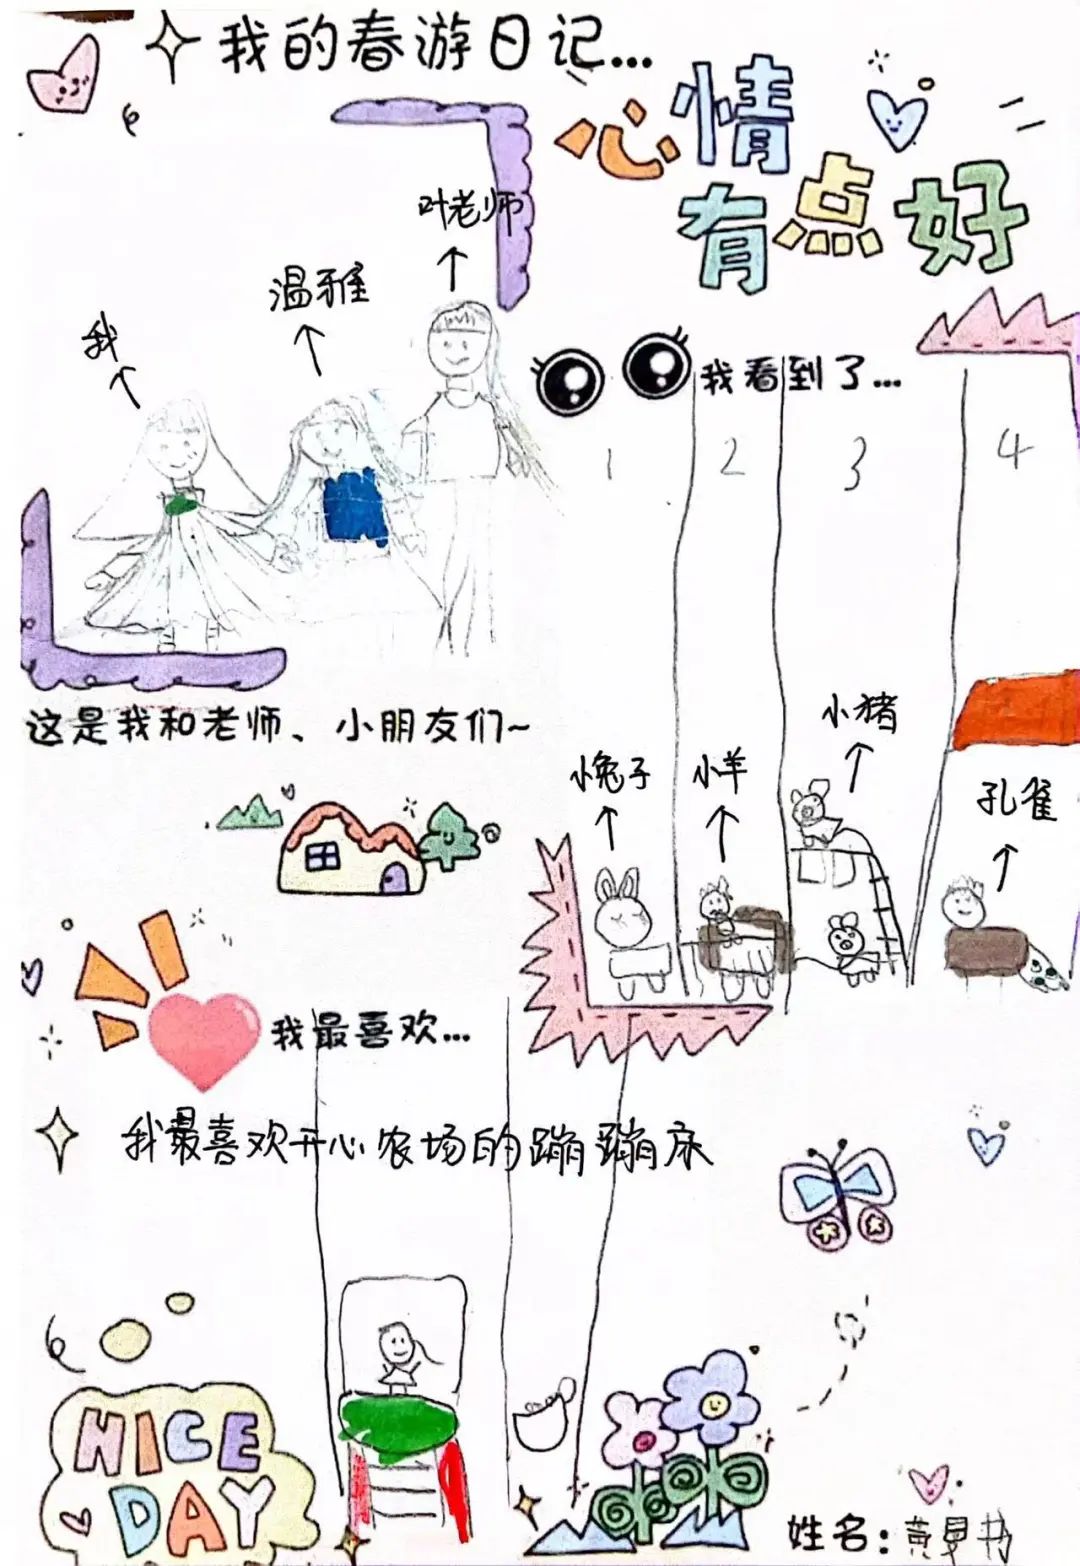 我的春游日记...
心情
有点好
叶老师
温雅
我
这是我和老师、小朋友们~
我看到了...
1
2
3
4
小兔子
小羊
小猪
孔雀
我最喜欢...
我最喜欢开心农场的蹦蹦床
NICE
DAY
姓名：黄曼